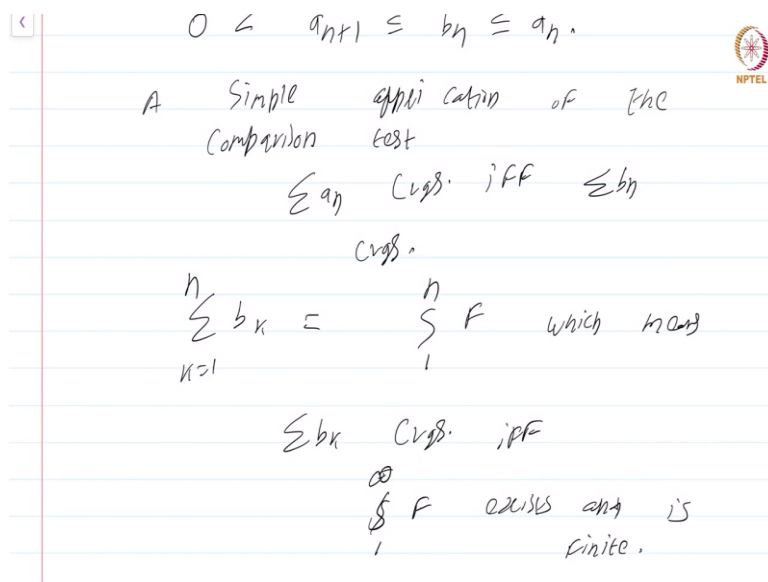 0 < a_{n+1} ≤ b_n ≤ a_n.
NPTEL
A Simple application of the
Comparison test
Σ a_n Cvgs. iff Σ b_n
Cvgs.
\sum_{k=1}^{n} b_k = \int_{1}^{n} F which means
Σ b_k Cvgs. iff
\int_{1}^{∞} F exists and is
finite.